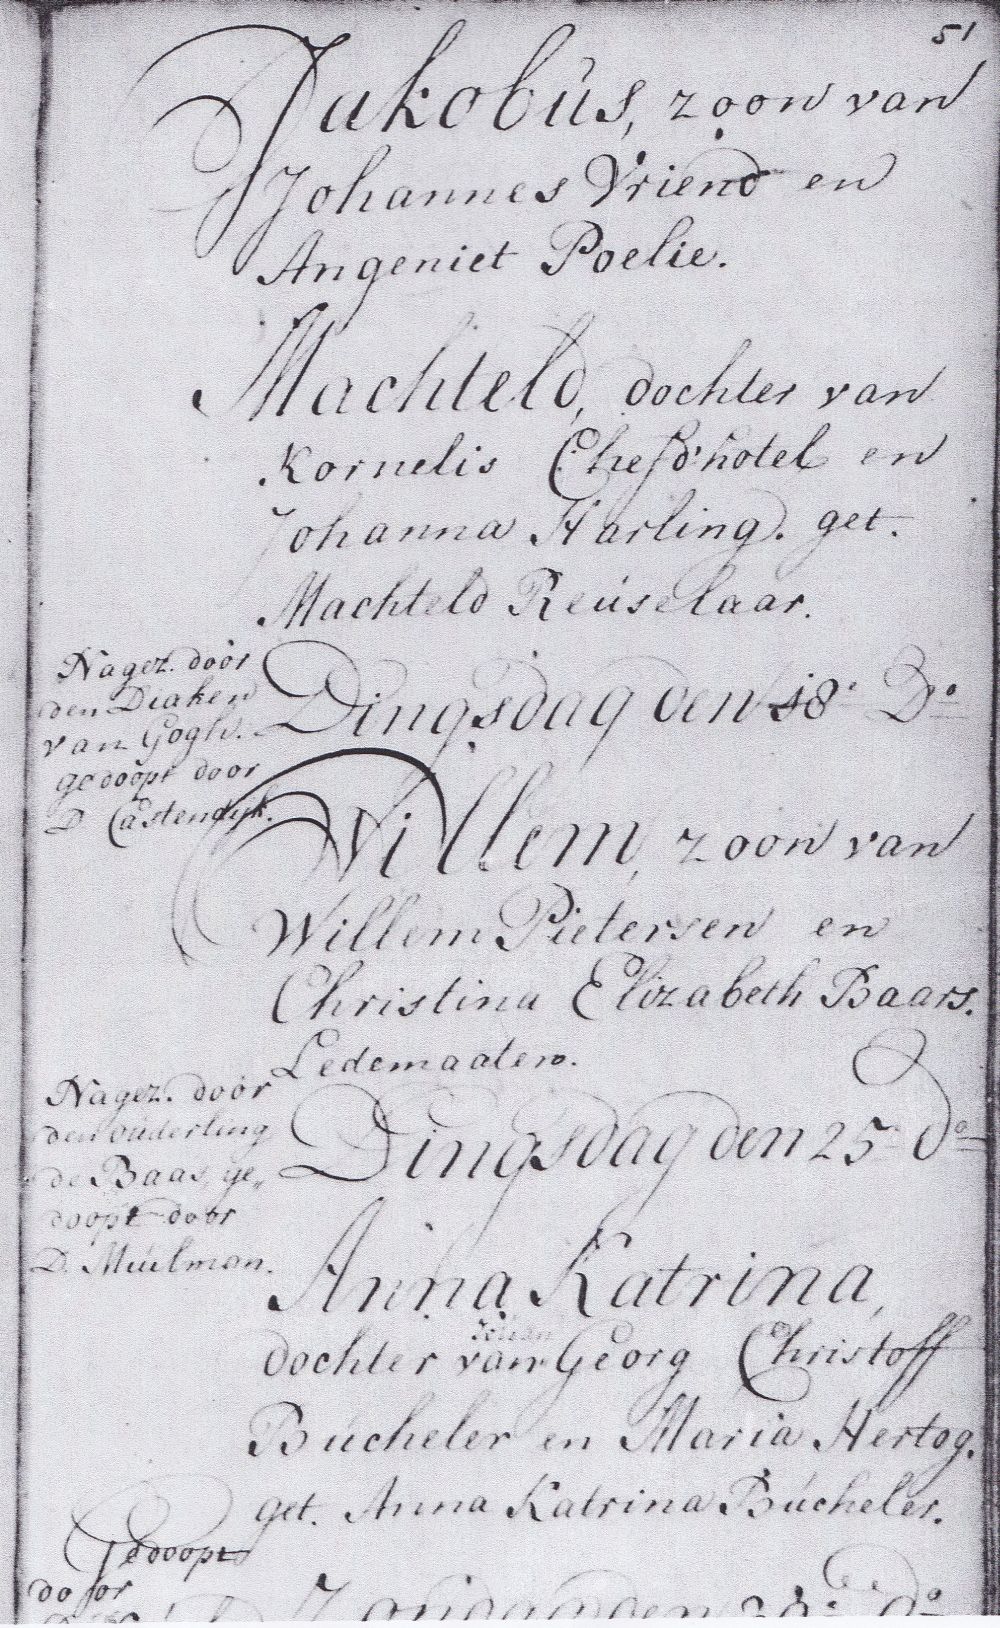 51
Jakobus, zoon van
Johannes Vriend en
Angeniet Poelie.
Machteld, dochter van
Kornelis Chefd'hotel en
Johanna Harling. get.
Machteld Reúselaar.
Nagez. door
den Diaken
van Gogh.
gedoopt door
D Castendijk.
Dingsdag den 18e Do
Willem, zoon van
Willem Pietersen en
Christina Elizabeth Baars.
Ledemaaten.
Nagez. door
den ouderling
de Baas, ge„
doopt door
D. Múelman.
Dingsdag den 25e do
Anna Katrina,
Johan
dochter van Georg Christoff
Búcheler en Maria Hertog.
get. Anna Katrina Búcheler.
Gedoopt
door
Zondag den 30e do